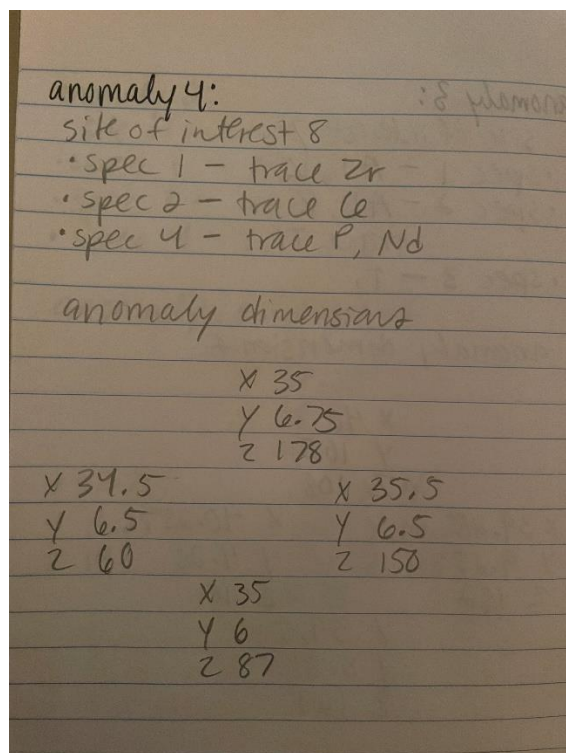 anomaly 4:
site of interest 8
• spec 1 - trace Zr
• spec 2 - trace Ce
• spec 4 - trace P, Nd
anomaly dimensions
X 35
Y 6.75
Z 178
X 34.5
Y 6.5
Z 60
X 35.5
Y 6.5
Z 150
X 35
Y 6
Z 87